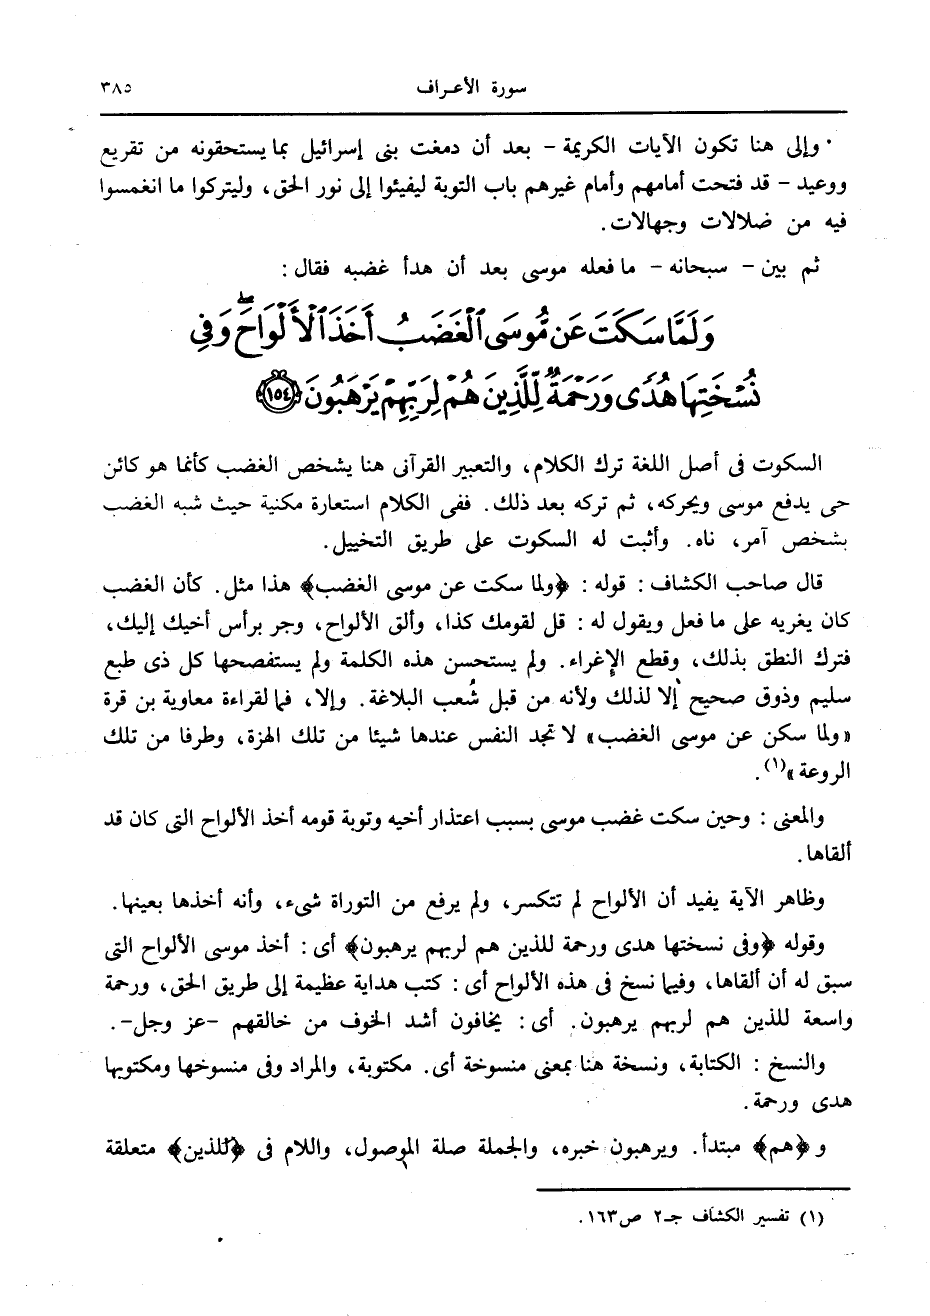 سورة الأعراف ٣٨٥
وإلى هنا تكون الآيات الكريمة - بعد أن دمغت بنى إسرائيل بما يستحقونه من تقريع
ووعيد - قد فتحت أمامهم وأمام غيرهم باب التوبة ليفيئوا إلى نور الحق، وليتركوا ما انغمسوا
فيه من ضلالات وجهالات.
ثم بين - سبحانه - ما فعله موسى بعد أن هدأ غضبه فقال :
وَلَمَّا سَكَتَ عَن مُّوسَى ٱلْغَضَبُ أَخَذَ ٱلْأَلْوَاحَ ۖ وَفِى
نُسْخَتِهَا هُدًى وَرَحْمَةٌ لِّلَّذِينَ هُمْ لِرَبِّهِمْ يَرْهَبُونَ ﴿١٥٤﴾
السكوت فى أصل اللغة ترك الكلام، والتعبير القرآنى هنا يشخص الغضب كأنما هو كائن
حى يدفع موسى ويحركه، ثم تركه بعد ذلك. ففى الكلام استعارة مكنية حيث شبه الغضب
بشخص آمر، ناه. وأثبت له السكوت على طريق التخييل.
قال صاحب الكشاف : قوله : ﴿ولما سكت عن موسى الغضب﴾ هذا مثل. كأن الغضب
كان يغريه على ما فعل ويقول له : قل لقومك كذا، وألق الألواح، وجر برأس أخيك إليك،
فترك النطق بذلك، وقطع الإغراء. ولم يستحسن هذه الكلمة ولم يستفصحها كل ذى طبع
سليم وذوق صحيح إلا لذلك ولأنه من قبل شُعب البلاغة. وإلا، فما لقراءة معاوية بن قرة
«ولما سكن عن موسى الغضب» لا تجد النفس عندها شيئا من تلك الهزة، وطرفا من تلك
الروعة»(١).
والمعنى : وحين سكت غضب موسى بسبب اعتذار أخيه وتوبة قومه أخذ الألواح التى كان قد
ألقاها.
وظاهر الآية يفيد أن الألواح لم تتكسر، ولم يرفع من التوراة شىء، وأنه أخذها بعينها.
وقوله ﴿وفى نسختها هدى ورحمة للذين هم لربهم يرهبون﴾ أى : أخذ موسى الألواح التى
سبق له أن ألقاها، وفيما نسخ فى هذه الألواح أى : كتب هداية عظيمة إلى طريق الحق، ورحمة
واسعة للذين هم لربهم يرهبون. أى : يخافون أشد الخوف من خالقهم -عز وجل-.
والنسخ : الكتابة، ونسخة هنا بمعنى منسوخة أى. مكتوبة، والمراد وفى منسوخها ومكتوبها
هدى ورحمة.
و ﴿هم﴾ مبتدأ. ويرهبون خبره، والجملة صلة الموصول، واللام فى ﴿للذين﴾ متعلقة
(١) تفسير الكشاف جـ٢ ص١٦٣.